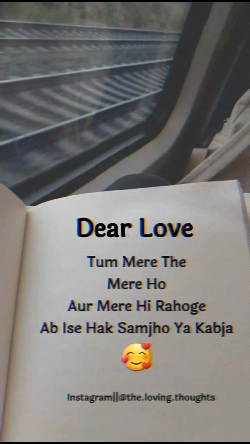 Dear Love
Tum Mere The
Mere Ho
Aur Mere Hi Rahoge
Ab Ise Hak Samjho Ya Kabja
🥰
Instagram||@the.loving.thoughts